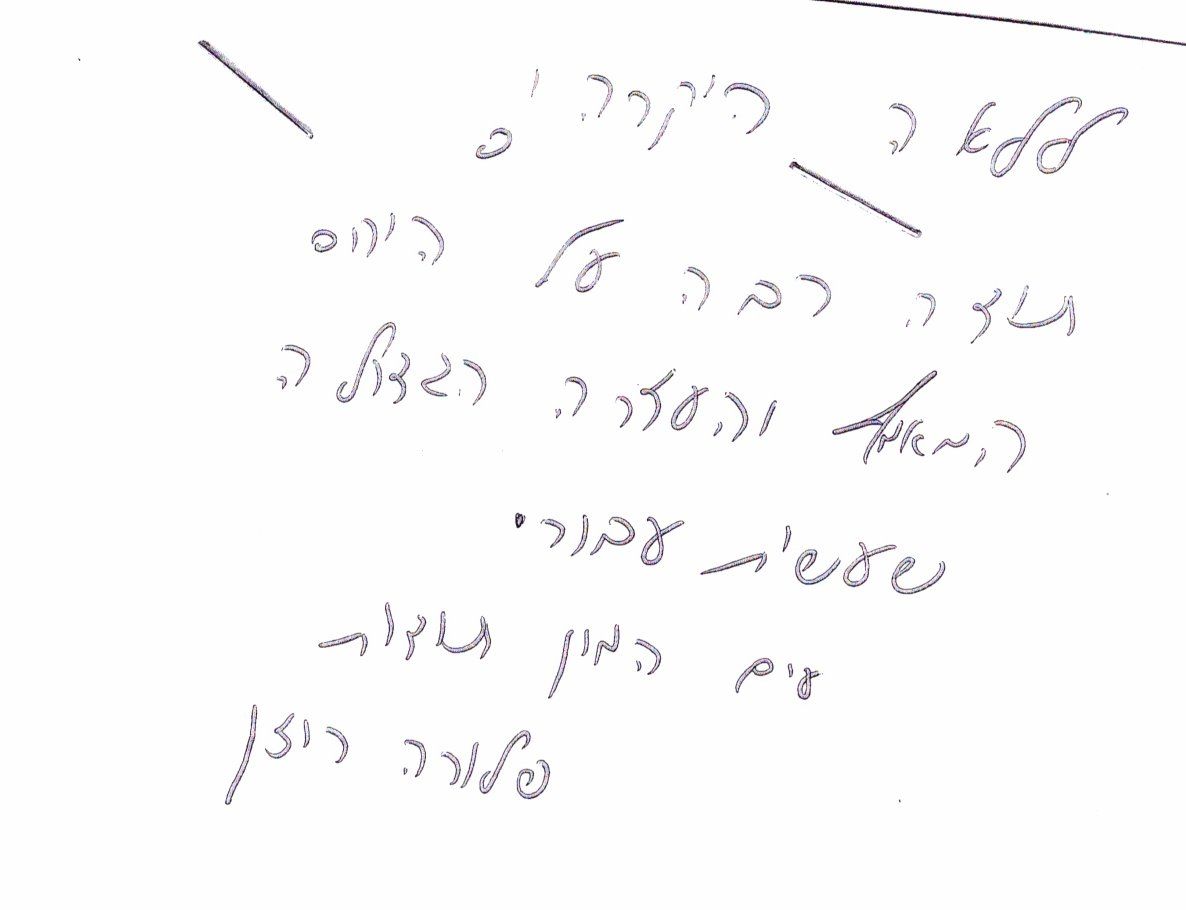 ללאה היקרה !
תודה רבה על היום
המאמץ והעזרה הגדולה
שעשית עבורי.
עים המון תודות
פלורה רוזן